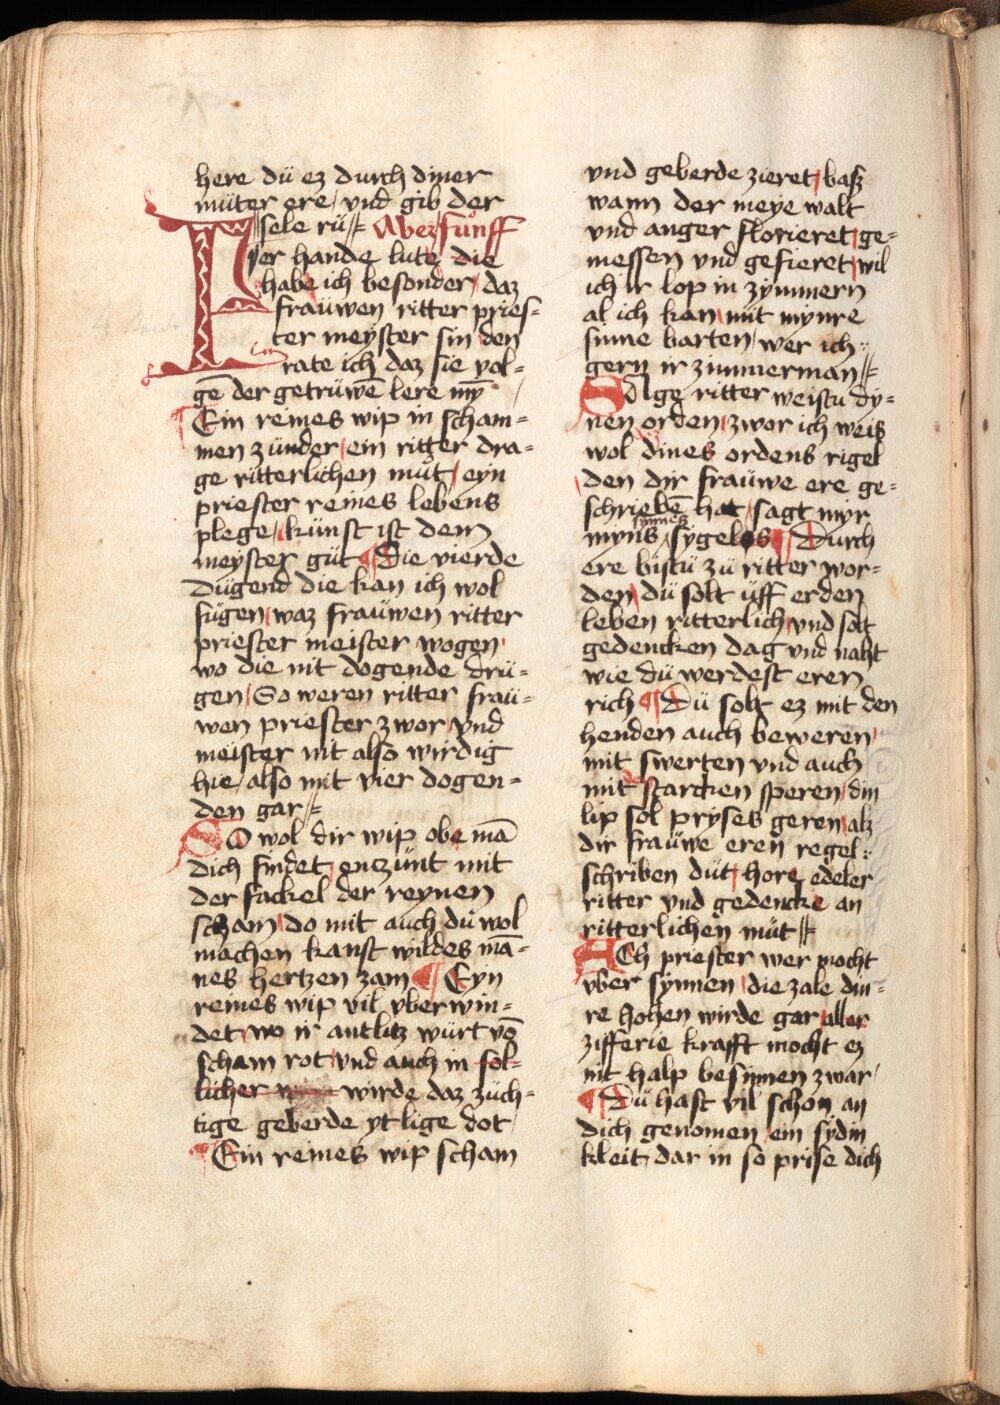 here dü ez durch diner
müter ere / vnd gib der
sele rü // Aber fünff
Fier hande lute die
habe ich besonder / daz
fraüwen ritter pries-
ter meyster sin den
rate ich daz sie vol-
gē der getrüwē lere mȳ
¶ Ein reines wip in scham-
men zünder / ein ritter dra-
ge ritterlichen müt / eyn
priester reines lebens
plege / künst ist dem
meyster güt ¶ Die vierde
dügend die kan ich wol
fügen / waz fraüwen ritter
priester meister wogen
wo die nit dogende drü-
gen / So weren ritter fraü-
wen priester zwor / vnd
meister nit also wirdig
hie / also mit vier dogen-
den gar //
SO wol dir wip obe mā
dich findet / enczünt mit
der fackel der reynen
scham / do mit auch du wol
machen kanst wildes mā-
nes hertzen zam ¶ Eyn
reines wip vil vberwin-
det / wo ir antlitz würt vō
scham rot / vnd auch in sol-
licher wirde daz züch-
tige geberde ytlige dot
¶ Ein reines wip scham
vnd geberde zieret / basz
wann der meye walt
vnd anger florieret / ge-
messen vnd gefieret / wil
ich ir lop in zymmern
al ich kan / mit mynre
sinne barten / wer ich
gern ir zimmerman //
SAlge ritter weistu dy-
nen orden / zwor ich weis
wol dines ordens rigel
den dir fraüwe ere ge-
schriebē hat / sagt myr
myns synnes sygelos ¶ Durch
ere bistü zü ritter wor-
den / dü solt üff erden
leben ritterlich / vnd solt
gedencken dag vnd naht
wie dü werdest eren
rich ¶ Dü solt ez mit den
henden auch beweren
mit swerten vnd auch
mit starcken speren / din
lip sol pryses geren / alz
dir fraüwe eren regel
schriben düt / hore edeler
ritter vnd gedencke an
ritterlichen müt //
ACh priester wer mocht
vber synnen / die zale din-
re hohen wirde gar / aller
zifferie krafft mocht ez
nit halp besinnen zwar
¶ Dü hast vil schon an
dich genomen / ein sydin
kleit / dar in so prise dich